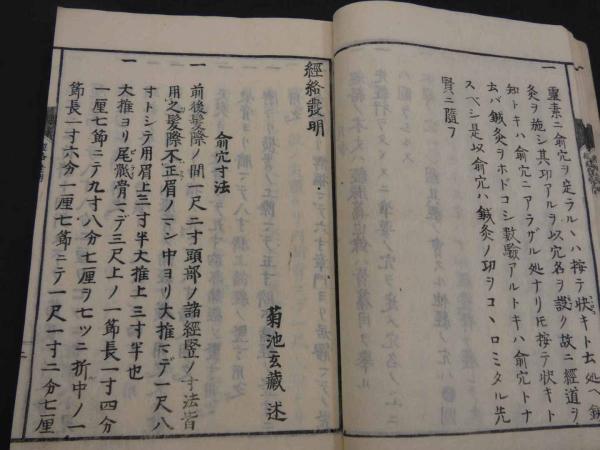 一 靈素ニ俞穴ヲ定ラルヽハ按テ快キト云処ヘ鍼
灸ヲ施シ其功アルヲ以穴名ヲ設ク故ニ經道ヲ
知トキハ俞穴ニアラザル処ナリ𪜈按テ快キト
云バ鍼灸ヲホドコシ数驗アルトキハ俞穴トナ
スベシ是以俞穴ハ鍼灸ノ功ヲコヽロミタル先
賢ニ隨フ
經絡發明
菊池玄蔵述
俞穴寸法
一 前後髪際ノ間一尺二寸頭部ノ諸經竪ノ寸法皆
用之髪際不正眉ノマン中ヨリ大推マデ一尺八
寸トシテ用眉上三寸半大推上三寸半也
一 大推ヨリ尾骶骨マデ三尺上ノ一節長一寸四分
一厘七節ニテ九寸八分七厘ヲ七ツニ折中ノ一
節長一寸六分一厘七節ニテ一尺一寸二分七厘